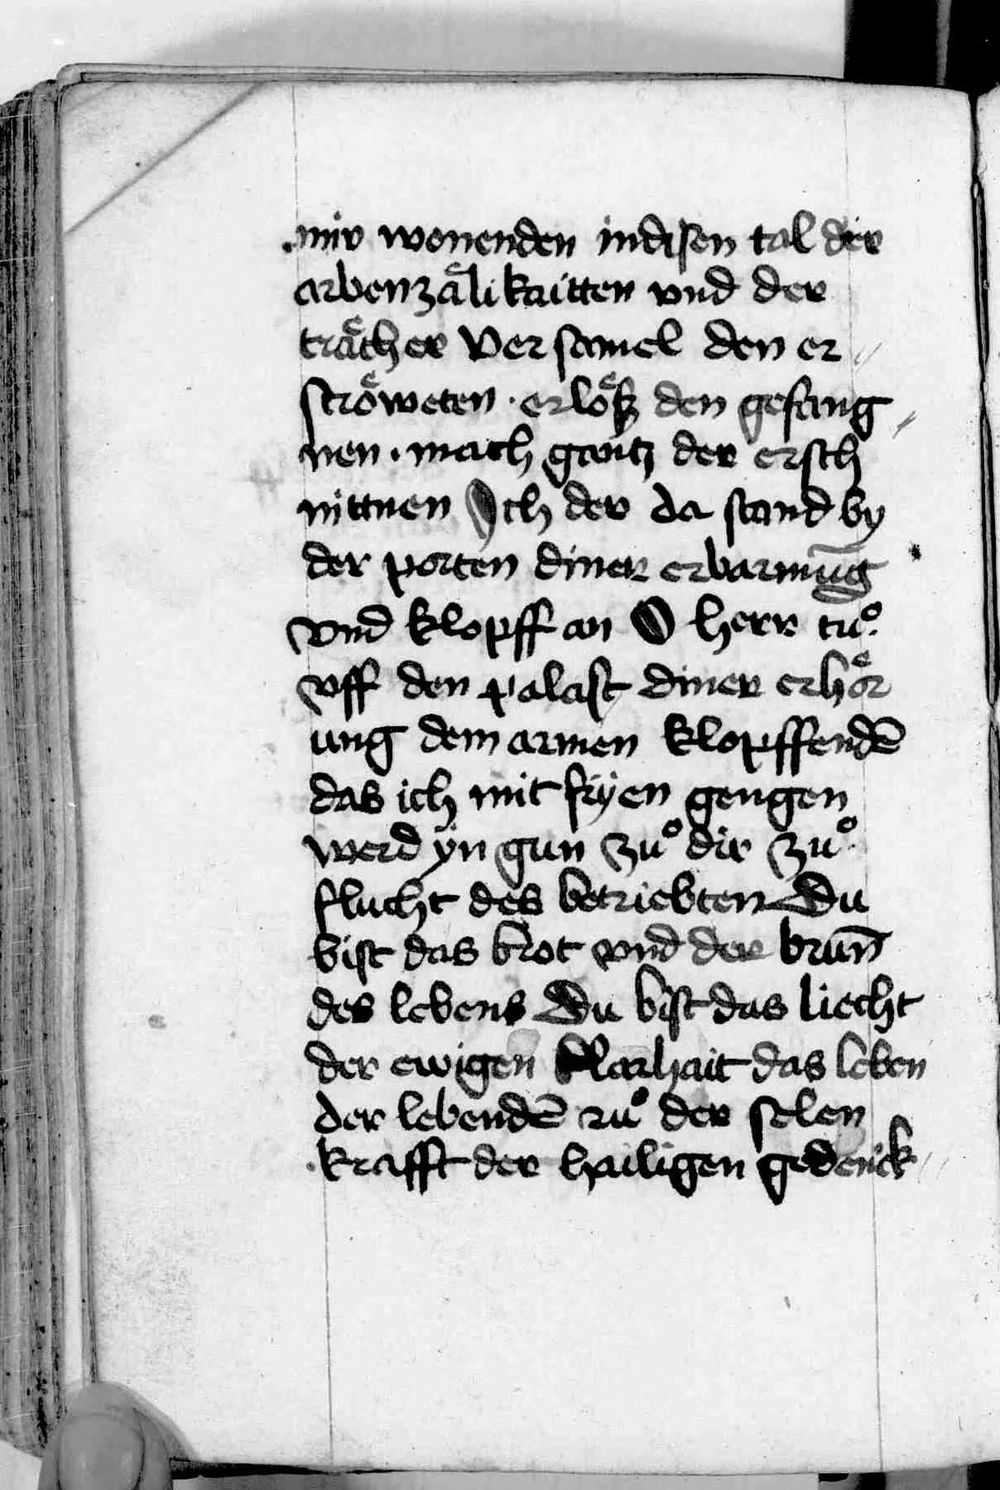 mir wonenden indisen tal der
arbenzaͤlikaitten vnd der
traͤcher Versamel den er
stroͤweten · erloͤß den gefang
nen · mach gantz der ersch
nittnen Ich der da stand by
der porten diner erbarmūg
vnd klopff an O herr tuͦ
vff den palast diner erhoͤr
ung dem armen klopffendē
das ich mit fryen gengen
werd yn gun zuͦ dir zuͦ
flucht des betriebten Du
bist das brot vnd der brun̄
des lebens Du bist das liecht
der ewigen klarhait das leben
der lebendē zuͦ der selen
krafft der hailigen gedenck